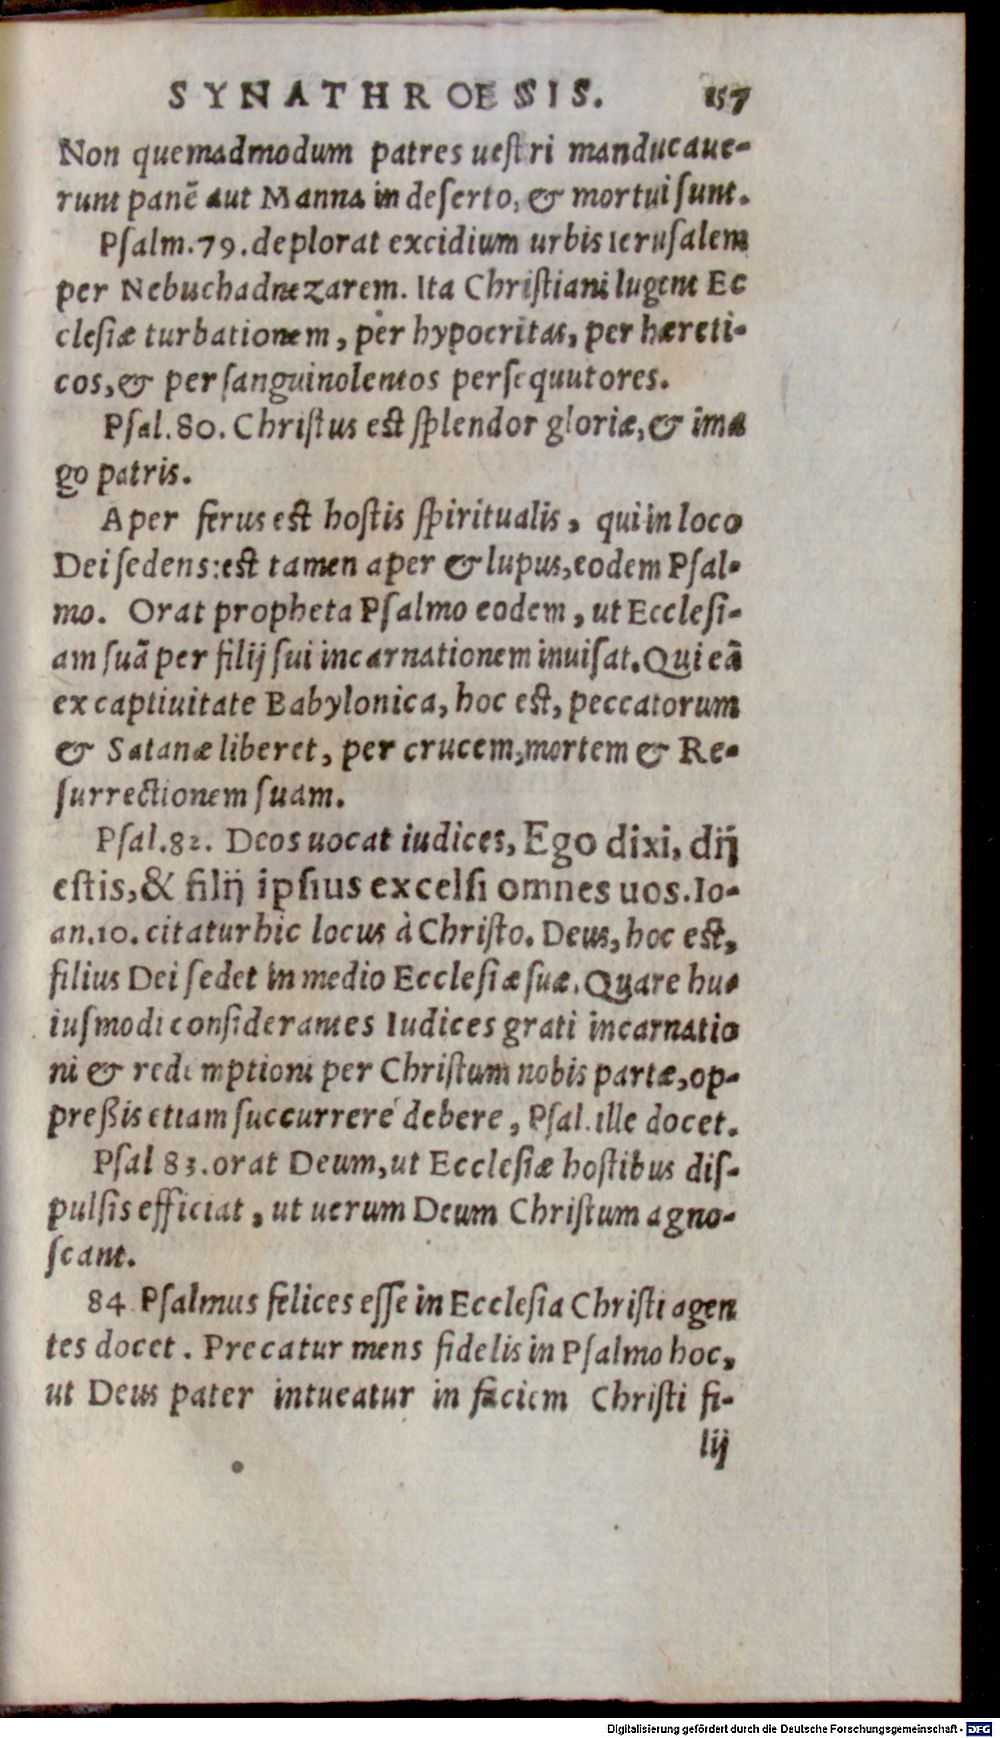 SYNATHROESIS. 157
Non quemadmodum patres uestri manducaue-
runt panē aut Manna in deserto, & mortui sunt.
Psalm. 79. deplorat excidium urbis Ierusalem
per Nebuchadnezarem. Ita Christiani lugent Ec
clesiæ turbationem, per hypocritas, per hæreti-
cos, & per sanguinolentos persequutores.
Psal. 80. Christus est splendor gloriæ, & ima
go patris.
Aper ferus est hostis spiritualis, qui in loco
Dei sedens: est tamen aper & lupus, eodem Psal-
mo. Orat propheta Psalmo eodem, ut Ecclesi-
am suā per filij sui incarnationem inuisat. Qui eā
ex captiuitate Babylonica, hoc est, peccatorum
& Satanæ liberet, per crucem, mortem & Re-
surrectionem suam.
Psal. 82. Deos uocat iudices, Ego dixi, dij
estis, & filij ipsius excelsi omnes uos. Io-
an. 10. citatur hic locus à Christo. Deus, hoc est,
filius Dei sedet in medio Ecclesiæ suæ. Quare hu-
iusmodi considerantes Iudices grati incarnatio
ni & redemptioni per Christum nobis partæ, op-
preßis etiam succurrere debere, Psal. ille docet.
Psal 83. orat Deum, ut Ecclesiæ hostibus dis-
pulsis efficiat, ut uerum Deum Christum agno-
scant.
84 Psalmus felices esse in Ecclesia Christi agen
tes docet. Precatur mens fidelis in Psalmo hoc,
ut Deus pater intueatur in faciem Christi fi-
lij
Digitalisierung gefördert durch die Deutsche Forschungsgemeinschaft - DFG